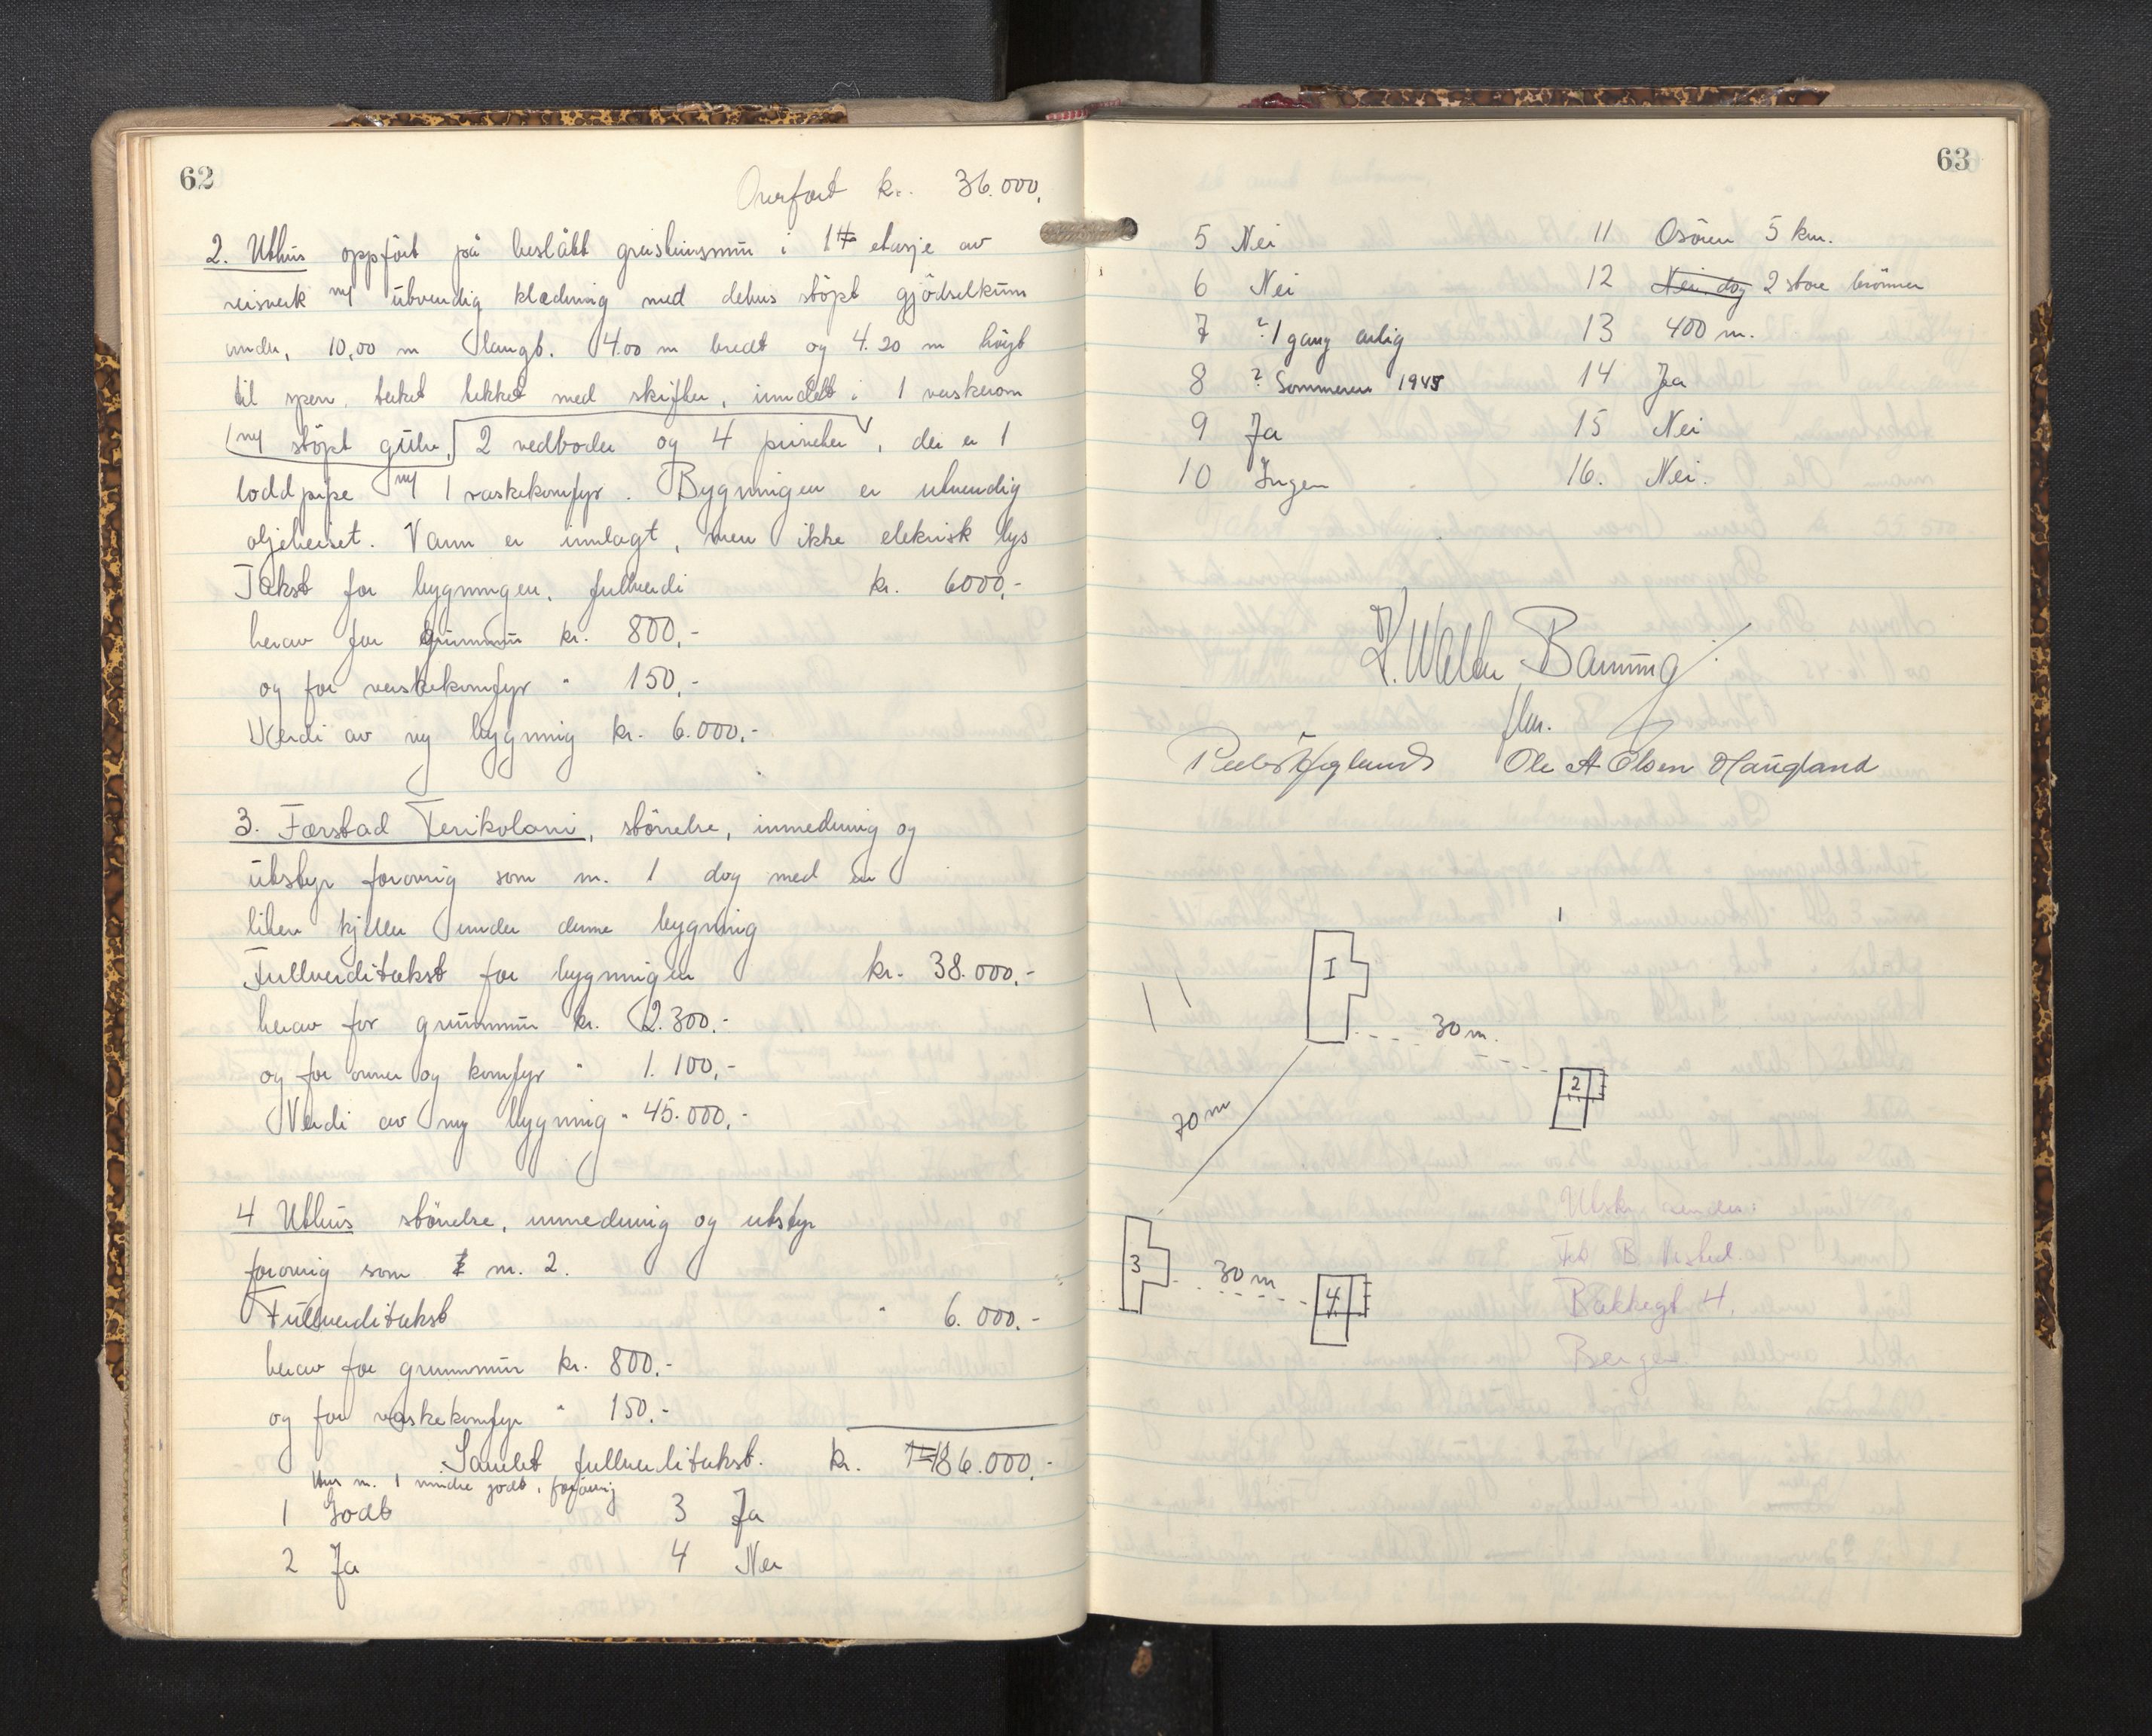 62
Overført kr. 36.000,
2. Uthus oppført på beslått gråsteinsmur i 1 etasje av
reisverk m/ utvendig kledning med delvis støpt gjødselkum
under, 10,00 m langt. 4.00 m bredt og 4.20 m høyt
til sperr, taket tekket med skifter, innridd i 1 vaskerom
m/ støpt gulv, 2 vedboder og 4 priveter, der er 1
loddpipe m/ 1 vaskekomfyr. Bygningen er utvendig
oljebeiset. Vann er innlagt, men ikke elektrisk lys
Takst for bygningen, fullverdi kr. 6000,-
herav for grunnmur kr. 800,-
og for vaskekomfyr " 150,-
Verdi av ny bygning kr. 6.000,-
3. Færstad Feriekoloni, størrelse, innredning og
utstyr forøvrig som nr. 1 dog med en
liten kjeller under denne bygning
Fullverditakst for bygningen kr. 38.000,-
herav for grunnmur kr. 2.300,-
og for ovner og komfyr " 1.100,-
Verdi av ny bygning " 45.000,-
4 Uthus størrelse, innredning og utstyr
forøvrig som nr. 2.
Fullverditakst " 6.000,-
herav for grunnmur kr. 800,-
og for vaskekomfyr " 150,-
Samlet fullverditakst. kr. 86.000,-
Hus nr. 1 mindre godt, forøvrig
1 Godt 3 Ja
2 Ja 4 Nei
63
5 Nei 11 Osøren 5 km.
6 Nei 12 Nei dog 2 store brønner
7 ? 1 gang årlig 13 400 m.
8 ? Sommeren 1945 14 Ja
9 Ja 15 Nei
10 Ingen 16. Nei.
K. Walter Banning
Ole A Olsen Haugland
I
30 m.
2
70 m
3
30 m
4
Utskr. sendes:
B.
Bakkegt 4.
Bergen.